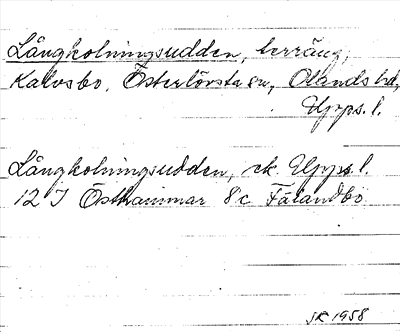 Långkolningsudden, terräng,
Kalvsbo, Österlövsta sn, Olands hd,
Upps. l.
Långkolningsudden, ek. Upps. l.
12 I Östhammar 8 c Fälandbo
JK 1958